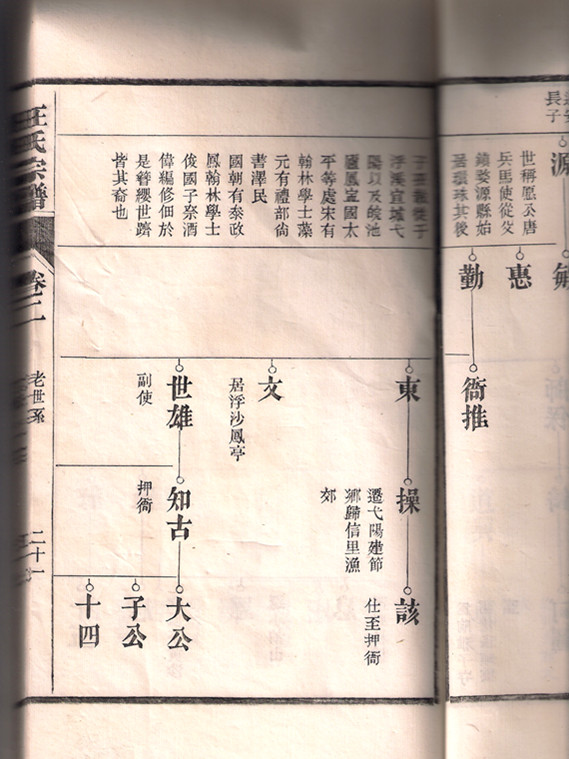 長子
源
世稱愿公唐
兵馬使從父
鎮婺源縣始
居環珠其後
敏
惠
勤
衙推
子孫散徙于
浮溪宣城弋
陽以及皖池
廬鳳宣國太
平等處宋有
翰林學士藻
元有禮部尚
書澤民
國朝有泰政
鳳翰林學士
俊國子祭酒
偉編修佃於
是簪纓世躋
皆其裔也
東
操
遷弋陽建節
鄉歸信里漁
郊
該
仕至押衙
文
居浮沙鳳亭
世雄
副使
知古
押衙
大公
子公
十四
汪氏宗譜
卷二
老世系
二十一